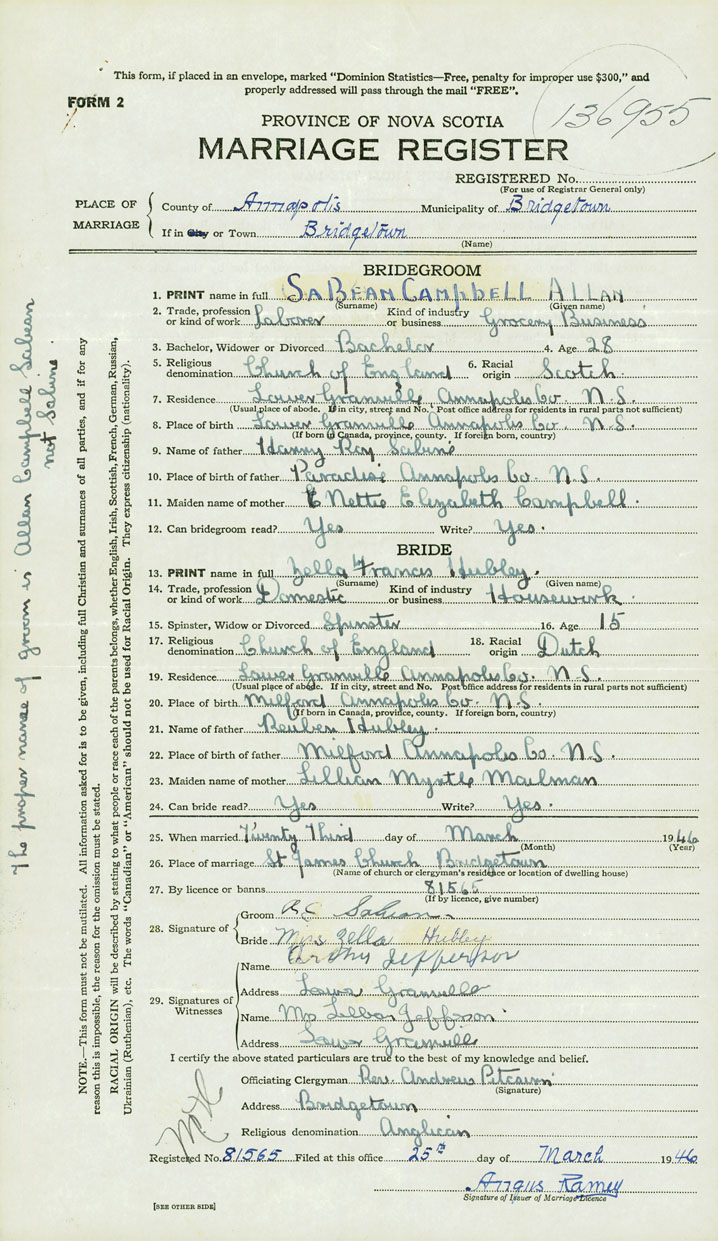 This form, if placed in an envelope, marked "Dominion Statistics—Free, penalty for improper use $300," and
properly addressed will pass through the mail "FREE".
FORM 2
136955
PROVINCE OF NOVA SCOTIA
MARRIAGE REGISTER
REGISTERED No.
(For use of Registrar General only)
PLACE OF MARRIAGE
County of Annapolis Municipality of Bridgetown
If in City or Town Bridgetown
(Name)
BRIDEGROOM
1. PRINT name in full SaBean Campbell Allan
(Surname) (Given name)
2. Trade, profession or kind of work Laborer Kind of industry or business Grocery Business
3. Bachelor, Widower or Divorced Bachelor 4. Age 28
5. Religious denomination Church of England 6. Racial origin Scotch
7. Residence Lower Granville Annapolis Co. N.S.
(Usual place of abode. If in city, street and No. Post office address for residents in rural parts not sufficient)
8. Place of birth Lower Granville Annapolis Co. N.S.
(If born in Canada, province, county. If foreign born, country)
9. Name of father Hanny Roy Sabine
10. Place of birth of father Paradise Annapolis Co. N.S.
11. Maiden name of mother Nettie Elizabeth Campbell
12. Can bridegroom read? Yes Write? Yes
BRIDE
13. PRINT name in full Zella Francis Hubley
(Surname) (Given name)
14. Trade, profession or kind of work Domestic Kind of industry or business Housework
15. Spinster, Widow or Divorced Spinster 16. Age 15
17. Religious denomination Church of England 18. Racial origin Dutch
19. Residence Lower Granville Annapolis Co. N.S.
(Usual place of abode. If in city, street and No. Post office address for residents in rural parts not sufficient)
20. Place of birth Milford Annapolis Co. N.S.
(If born in Canada, province, county. If foreign born, country)
21. Name of father Reuben Hubley
22. Place of birth of father Milford Annapolis Co. N.S.
23. Maiden name of mother Lillian Myrtle Moulman
24. Can bride read? Yes Write? Yes
25. When married Twenty Third day of March 1946
(Month) (Year)
26. Place of marriage St James Church Bridgetown
(Name of church or clergyman's residence or location of dwelling house)
27. By licence or banns 81565
(If by licence, give number)
28. Signature of
Groom Sabean
Bride Miss Zella Hubley
29. Signatures of Witnesses
Name Jefferson
Address Lower Granville
Name Mrs
Address Lower Granville
I certify the above stated particulars are true to the best of my knowledge and belief.
Officiating Clergyman Rev. Andrew Pitcairn
(Signature)
Address Bridgetown
Religious denomination Anglican
Registered No. 81565 Filed at this office 25th day of March 1946
Angus Ramey
Signature of Issuer of Marriage Licence
[SEE OTHER SIDE]
The proper name of groom is Allan Campbell Sabean
not Sabine.
NOTE.—This form must not be mutilated. All information asked for is to be given, including full Christian and surnames of all parties, and if for any
reason this is impossible, the reason for the omission must be stated.
RACIAL ORIGIN will be described by stating to what people or race each of the parents belongs, whether English, Irish, Scottish, French, German, Russian,
Ukrainian (Ruthenian), etc. The words "Canadian" or "American" should not be used for Racial Origin. They express citizenship (nationality).